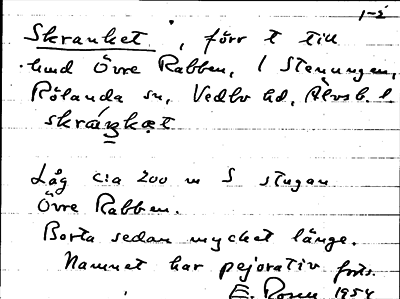 1-5
Skranket, förr t till
hmd Övre Rabben, 1 Stenungen,
Rölanda sn, Vedbo hd, Älvsb. l
skráŋkɐt
Låg c:a 200 m S stugan
Övre Rabben.
Borta sedan mycket länge.
Namnet har pejorativ forts.
E. Rosén 1954